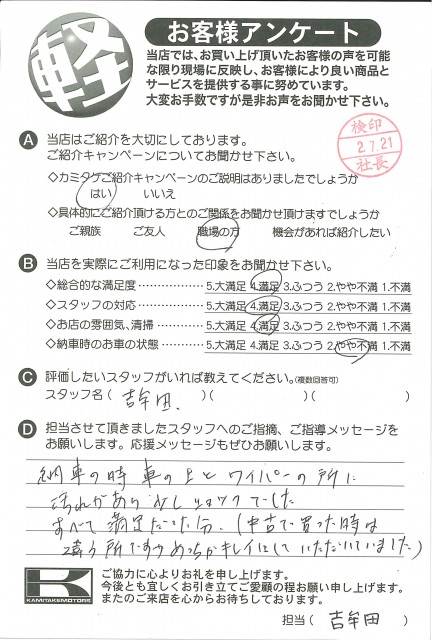 軽
お客様アンケート
当店では、お買い上げ頂いたお客様の声を可能
な限り現場に反映し、お客様により良い商品と
サービスを提供する事に努めています。
大変お手数ですが是非お声をお聞かせ下さい。
検印
2.7.21
社長
A 当店はご紹介を大切にしております。
ご紹介キャンペーンについてお聞かせ下さい。
◇カミタケご紹介キャンペーンのご説明はありましたでしょうか
はい いいえ
◇具体的にご紹介頂ける方とのご関係をお聞かせ頂けますでしょうか
ご親族 ご友人 職場の方 機会があれば紹介したい
B 当店を実際にご利用になった印象をお聞かせ下さい。
◇総合的な満足度…………5.大満足 4.満足 3.ふつう 2.やや不満 1.不満
◇スタッフの対応…………5.大満足 4.満足 3.ふつう 2.やや不満 1.不満
◇お店の雰囲気、清掃……5.大満足 4.満足 3.ふつう 2.やや不満 1.不満
◇納車時のお車の状態……5.大満足 4.満足 3.ふつう 2.やや不満 1.不満
C 評価したいスタッフがいれば教えてください。(複数回答可)
スタッフ名( 吉牟田 )( )( )
D 担当させて頂きましたスタッフへのご指摘、ご指導メッセージを
お願いします。応援メッセージもぜひお願いします。
納車の時 車の上と ワイパーの所に
汚れがあり 少しショックでした
すべて 満足だった分。(中古で買った時は
違う所ですがめっちゃキレイにして いただいていました)
K
KAMITAKE MOTORS
ご協力に心よりお礼を申し上げます。
今後とも宜しくお引き立てご愛顧の程お願い申し上げます。
またのご来店を心からお待ちしております。
担当( 吉牟田 )